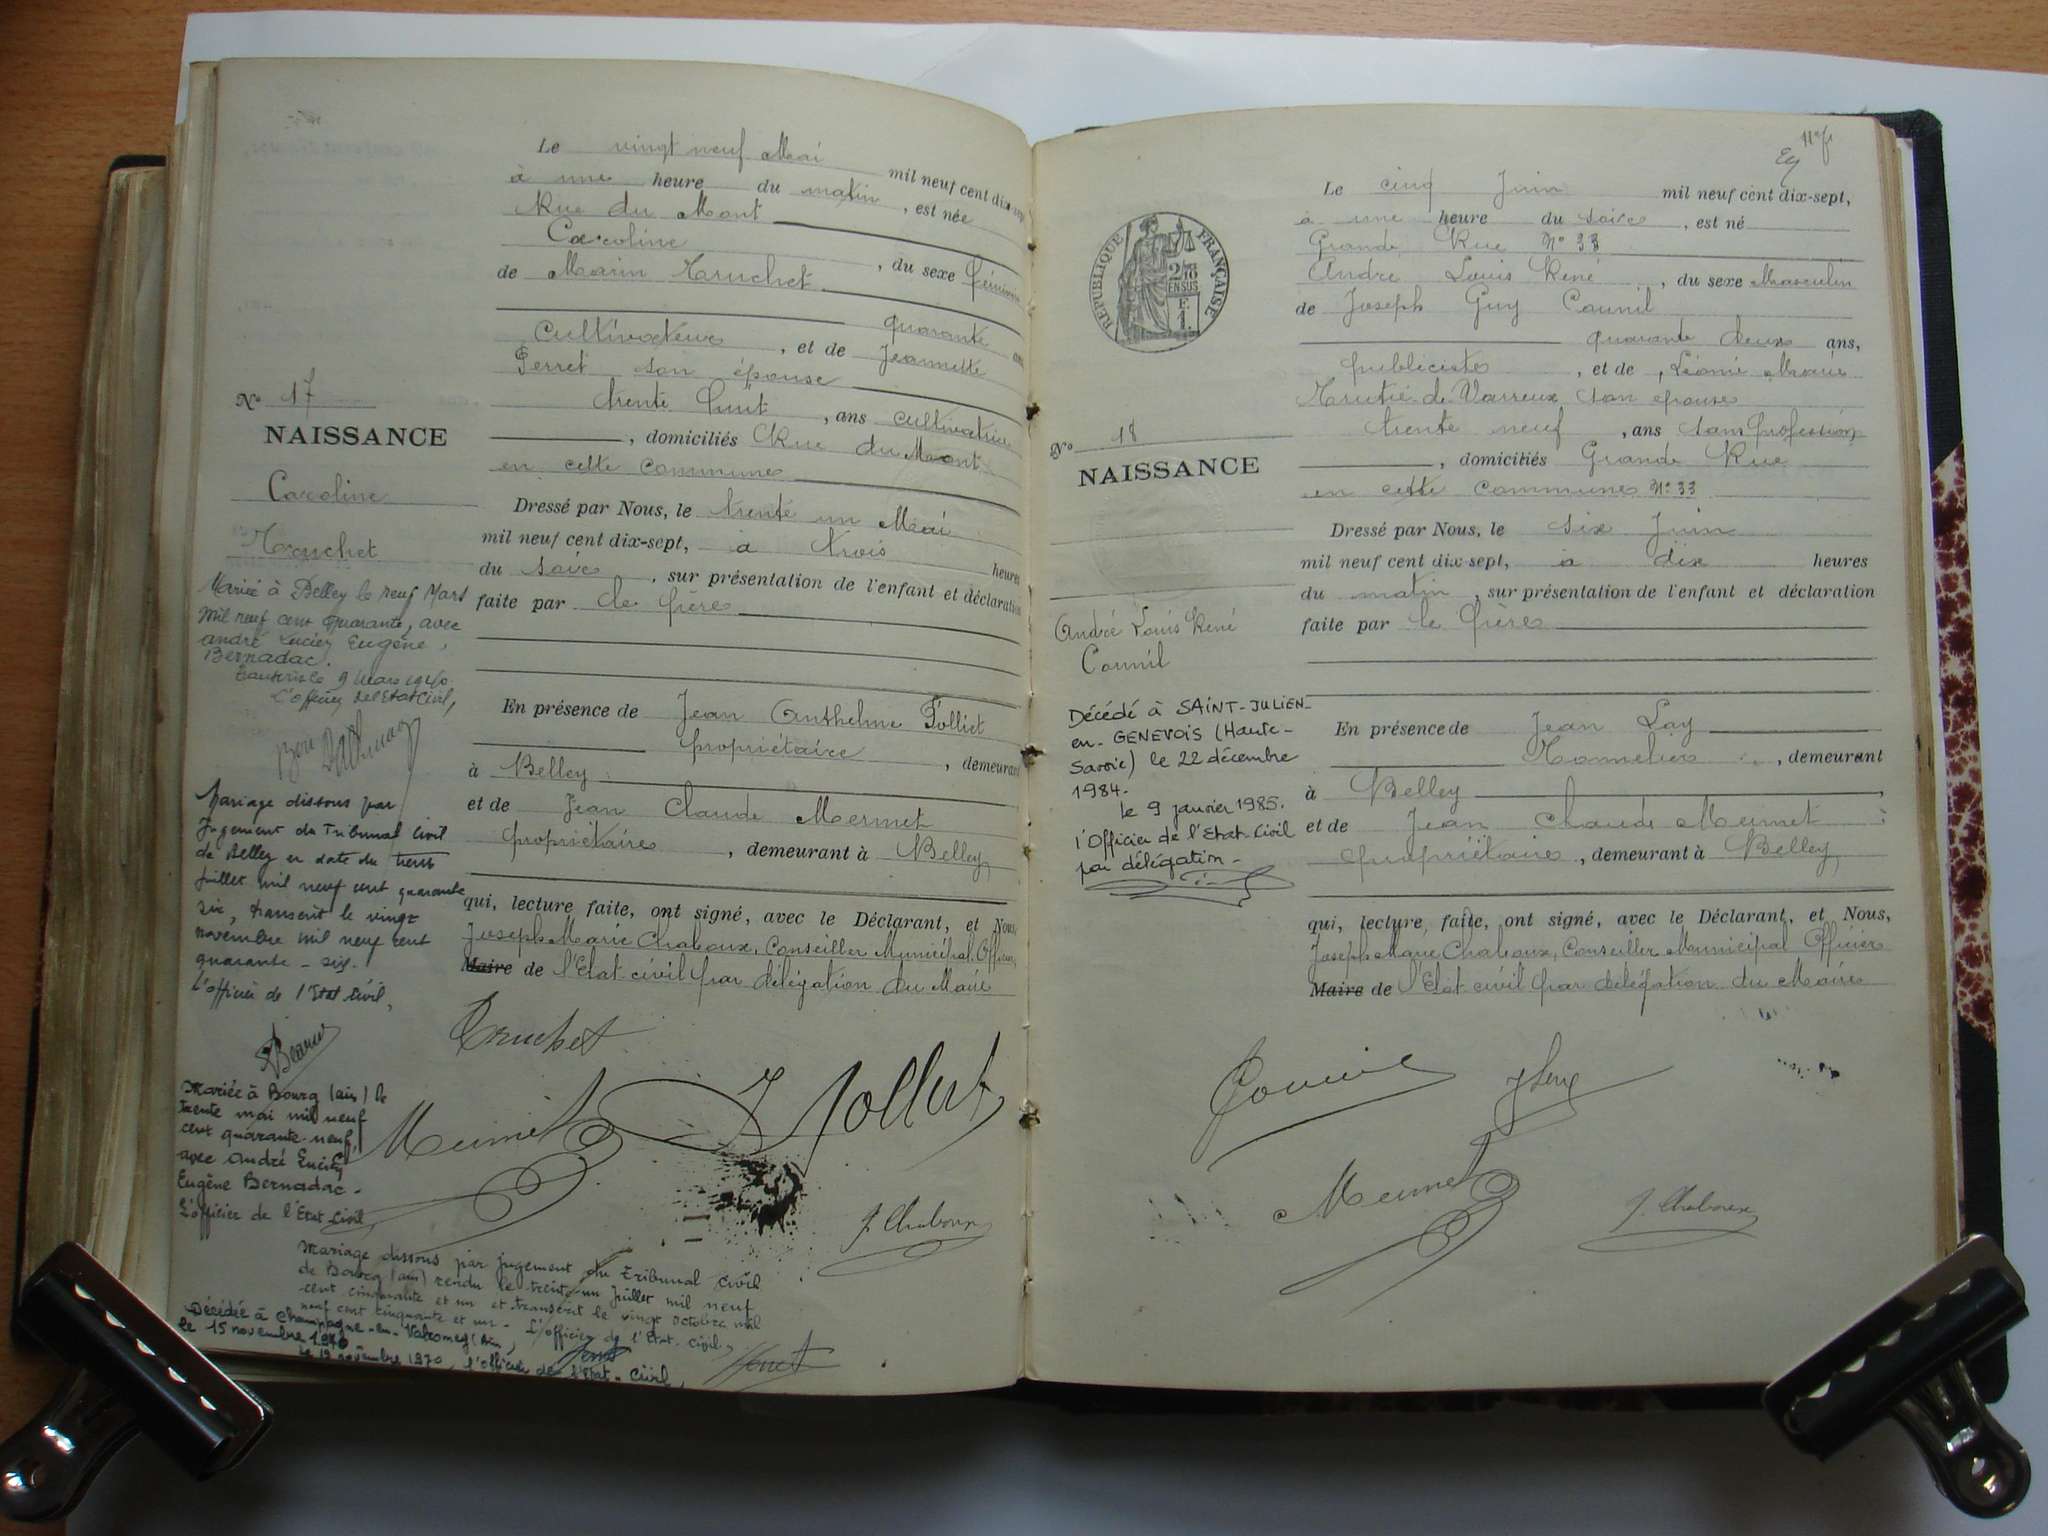 Le vingt neuf Mai mil neuf cent dix-sept
à une heure du matin, est née
Rue du Mont
Caroline, du sexe féminin
de Marin Truchet
quarante ans
cultivateur, et de Jeannette
Perret son épouse
trente huit, ans cultivatrice
, domiciliés Rue du Mont
en cette commune
Dressé par Nous, le trente un Mai
mil neuf cent dix-sept, à trois heures
du soir, sur présentation de l'enfant et déclaration
faite par le père
En présence de Jean Anthelme Folliet
propriétaire, demeurant
à Belley
et de Jean Claude Mermet
propriétaire, demeurant à Belley
qui, lecture faite, ont signé, avec le Déclarant, et Nous,
Joseph Marie Chaboux, Conseiller Municipal Officier
Maire de l'Etat civil par délégation du Maire
Truchet
Mermet
J Folliet
J. Chaboux
N° 17
NAISSANCE
Caroline
Truchet
Mariée à Belley le neuf Mars
mil neuf cent quarante, avec
andré Lucien Eugène
Bernadac.
Transcrit le 9 Mars 1940.
L'officier de l'Etat Civil,
Mariage dissous par
Jugement du Tribunal Civil
de Belley en date du trente
juillet mil neuf cent quarante
six, transcrit le vingt
novembre mil neuf cent
quarante-six.
L'officier de l'Etat Civil,
Mariée à Bourg (ain) le
trente mai mil neuf
cent quarante-neuf,
avec André Lucien
Eugène Bernadac-
L'officier de l'Etat Civil
Mariage dissous par jugement du Tribunal civil
de Bourg (ain) rendu le trente un Juillet mil neuf
cent cinquante et un et transcrit le vingt octobre mil
neuf cent cinquante et un- L'officier de l'Etat civil,
Décédée à Champagne-en-Valromey (Ain,
le 15 novembre 1970
le 19 novembre 1970, l'officier de l'Etat-Civil,
Le cinq Juin mil neuf cent dix-sept,
à une heure du soir, est né
Grande Rue N° 33
André Louis René, du sexe Masculin
de Joseph Guy Counil
quarante deux ans,
publiciste, et de, Léonie Marie
de Varreux son épouse
trente neuf, ans sans profession
, domiciliés Grande Rue
en cette commune N° 33
Dressé par Nous, le six Juin
mil neuf cent dix-sept, à dix heures
du matin, sur présentation de l'enfant et déclaration
faite par le père
En présence de Jean Lay
Tonnelier, demeurant
à Belley
et de Jean Claude Mermet
propriétaire, demeurant à Belley
qui, lecture faite, ont signé, avec le Déclarant, et Nous,
Joseph Marie Chaboux, Conseiller Municipal Officier
Maire de l'Etat civil par délégation du Maire
Counil
J Lay
Mermet
J. Chaboux
REPUBLIQUE FRANÇAISE
2/10
EN SUS
F.
1.
N° 18
NAISSANCE
André Louis René
Counil
Décédé à SAINT-JULIEN-
en-GENEVOIS (Haute-
Savoie) le 22 décembre
1984.
le 9 janvier 1985.
l'Officier de l'Etat-Civil
par délégation-